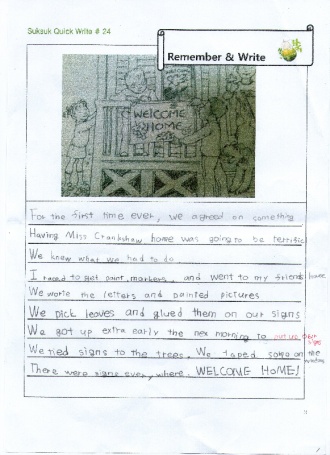 Suksuk Quick Write # 24
Remember & Write
WELCOME
HOME
For the first time ever, we agreed on something
Having Miss Crankshaw home was going to be terrific
We knew what we had to do
I raced to get paint, markers, and went to my friends house
We worte the letters and painted pictures
We pick leaves and glued them on our signs
We got up extra early the nex morning to put up our signs
We tied signs to the trees. We taped some on the windows
There were signs every where. WELCOME HOME!